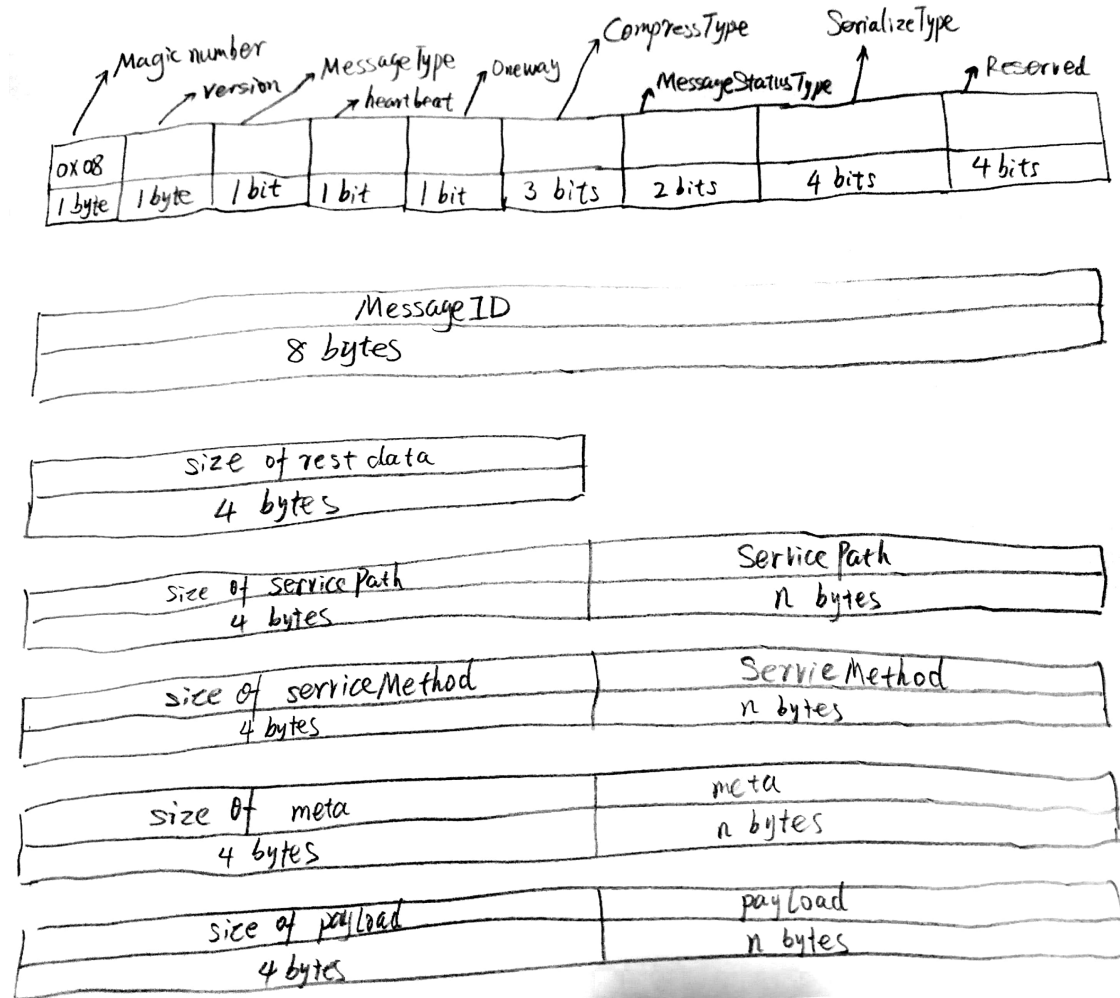 Magic number
version
MessageType
heartbeat
Oneway
CompressType
MessageStatusType
SerializeType
Reserved
0x08
1 byte 1 byte 1 bit 1 bit 1 bit 3 bits 2 bits 4 bits 4 bits
MessageID
8 bytes
size of rest data
4 bytes
size of servicePath Service Path
4 bytes n bytes
size of serviceMethod ServieMethod
4 bytes n bytes
size of meta meta
4 bytes n bytes
size of payload payload
4 bytes n bytes